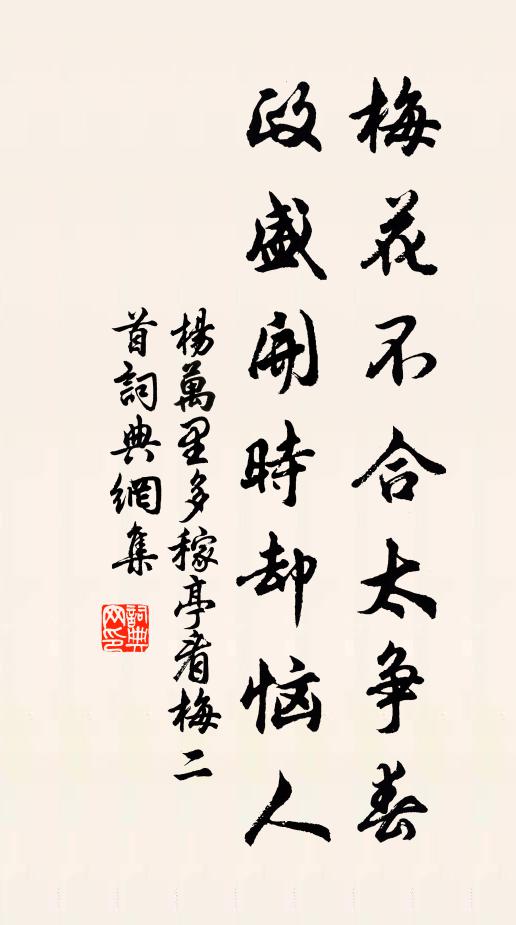 梅花不合太争春
政盛開時却恼人
楊萬里多稼亭看梅二
首詞典網集
詞典
网印